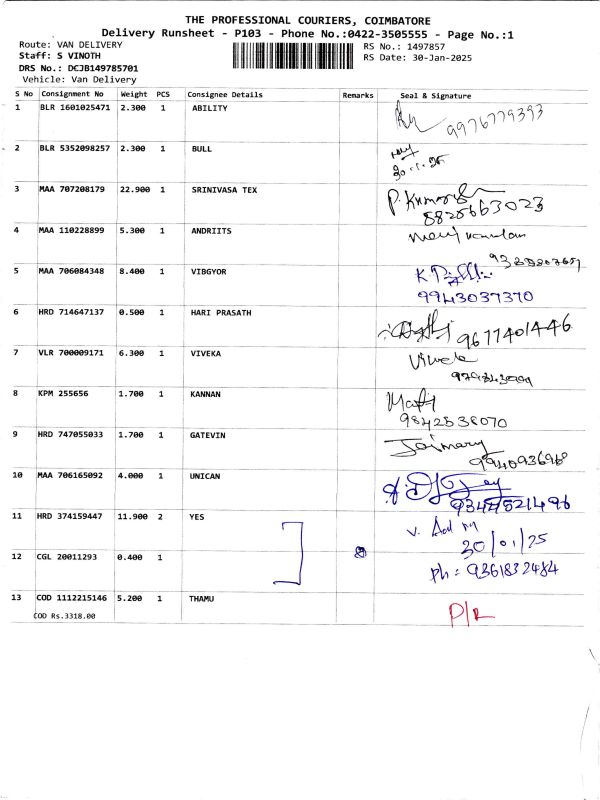 THE PROFESSIONAL COURIERS, COIMBATORE
Delivery Runsheet - P103 - Phone No.:0422-3505555 - Page No.:1
Route: VAN DELIVERY
RS No.: 1497857
Staff: S VINOTH
RS Date: 30-Jan-2025
DRS No.: DCJB149785701
Vehicle: Van Delivery
S No Consignment No Weight PCS Consignee Details Remarks Seal & Signature
1 BLR 1601025471 2.300 1 ABILITY
9976779393
2 BLR 5352098257 2.300 1 BULL
3 MAA 707208179 22.900 1 SRINIVASA TEX
P. Kumar
8825663023
4 MAA 110228899 5.300 1 ANDRIITS
5 MAA 706084348 8.400 1 VIBGYOR
9943037370
6 HRD 714647137 0.500 1 HARI PRASATH
9677401446
7 VLR 700009171 6.300 1 VIVEKA
Viveka
8 KPM 255656 1.700 1 KANNAN
9842538070
9 HRD 747055033 1.700 1 GATEVIN
Jaimary
9940936968
10 MAA 706165092 4.000 1 UNICAN
9344521496
11 HRD 374159447 11.900 2 YES
30/01/25
12 CGL 20011293 0.400 1
Ph: 9361832484
13 COD 1112215146 5.200 1 THAMU
P/R
COD Rs.3318.00